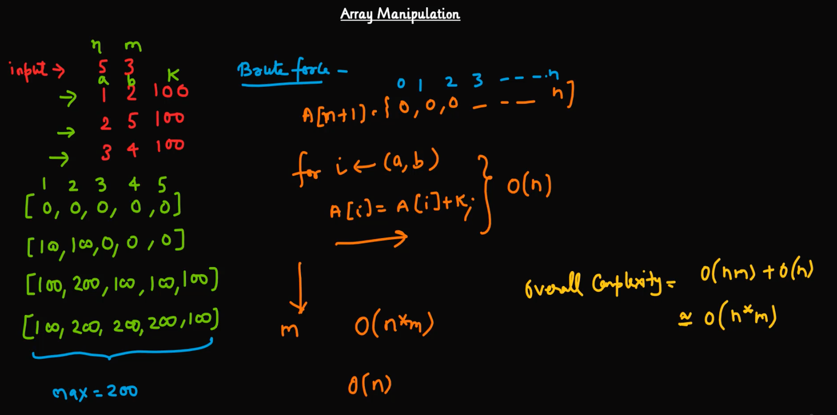 Array Manipulation
n m
input → 5 3
a b K
→ 1 2 100
→ 2 5 100
→ 3 4 100
1 2 3 4 5
[0, 0, 0, 0, 0]
[100, 100, 0, 0, 0]
[100, 200, 100, 100, 100]
[100, 200, 200, 200, 100]
max = 200
Brute force -
0 1 2 3 ---- n
A[n+1] = { 0, 0, 0 - - - n]
for i ← (a, b)
A[i] = A[i] + K;
} O(n)
m O(n*m)
O(n)
Overall Complexity = O(nm) + O(n)
≈ O(n*m)